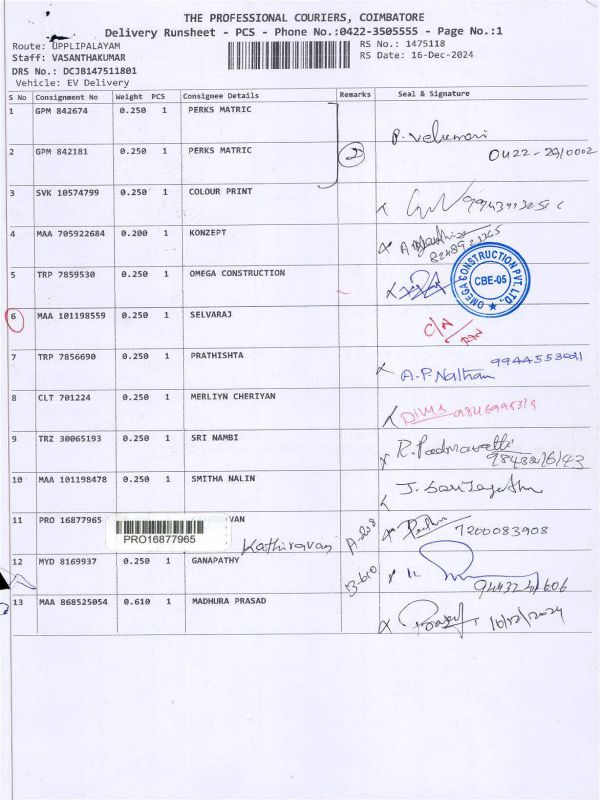 THE PROFESSIONAL COURIERS, COIMBATORE
Delivery Runsheet - PCS - Phone No.:0422-3505555 - Page No.:1
Route: UPPLIPALAYAM
RS No.: 1475118
Staff: VASANTHAKUMAR
RS Date: 16-Dec-2024
DRS No.: DCJB147511801
Vehicle: EV Delivery
S No Consignment No Weight PCS Consignee Details Remarks Seal & Signature
1 GPM 842674 0.250 1 PERKS MATRIC
P. Velumani
2 GPM 842181 0.250 1 PERKS MATRIC 2
3 SVK 10574799 0.250 1 COLOUR PRINT
4 MAA 705922684 0.200 1 KONZEPT
5 TRP 7859530 0.250 1 OMEGA CONSTRUCTION
OMEGA CONSTRUCTION PVT. LTD.,
CBE-05
6 MAA 101198559 0.250 1 SELVARAJ
7 TRP 7856690 0.250 1 PRATHISHTA
A.P. Nathan
8 CLT 701224 0.250 1 MERLIYN CHERIYAN
9 TRZ 30065193 0.250 1 SRI NAMBI
10 MAA 101198478 0.250 1 SMITHA NALIN
11 PRO 16877965 VAN
PRO16877965
Kathiravan
7200083908
12 MYD 8169937 0.250 1 GANAPATHY B-610
13 MAA 868525054 0.610 1 MADHURA PRASAD
16/12/2024